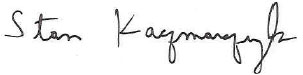 Stan Kaczmarczyk